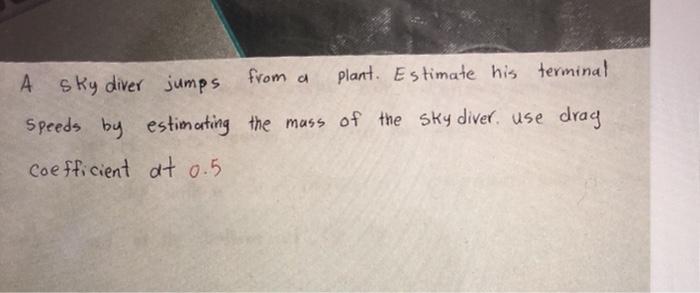 A sky diver jumps from a plant. Estimate his terminal
Speeds by estimating the mass of the sky diver. use drag
coefficient at 0.5